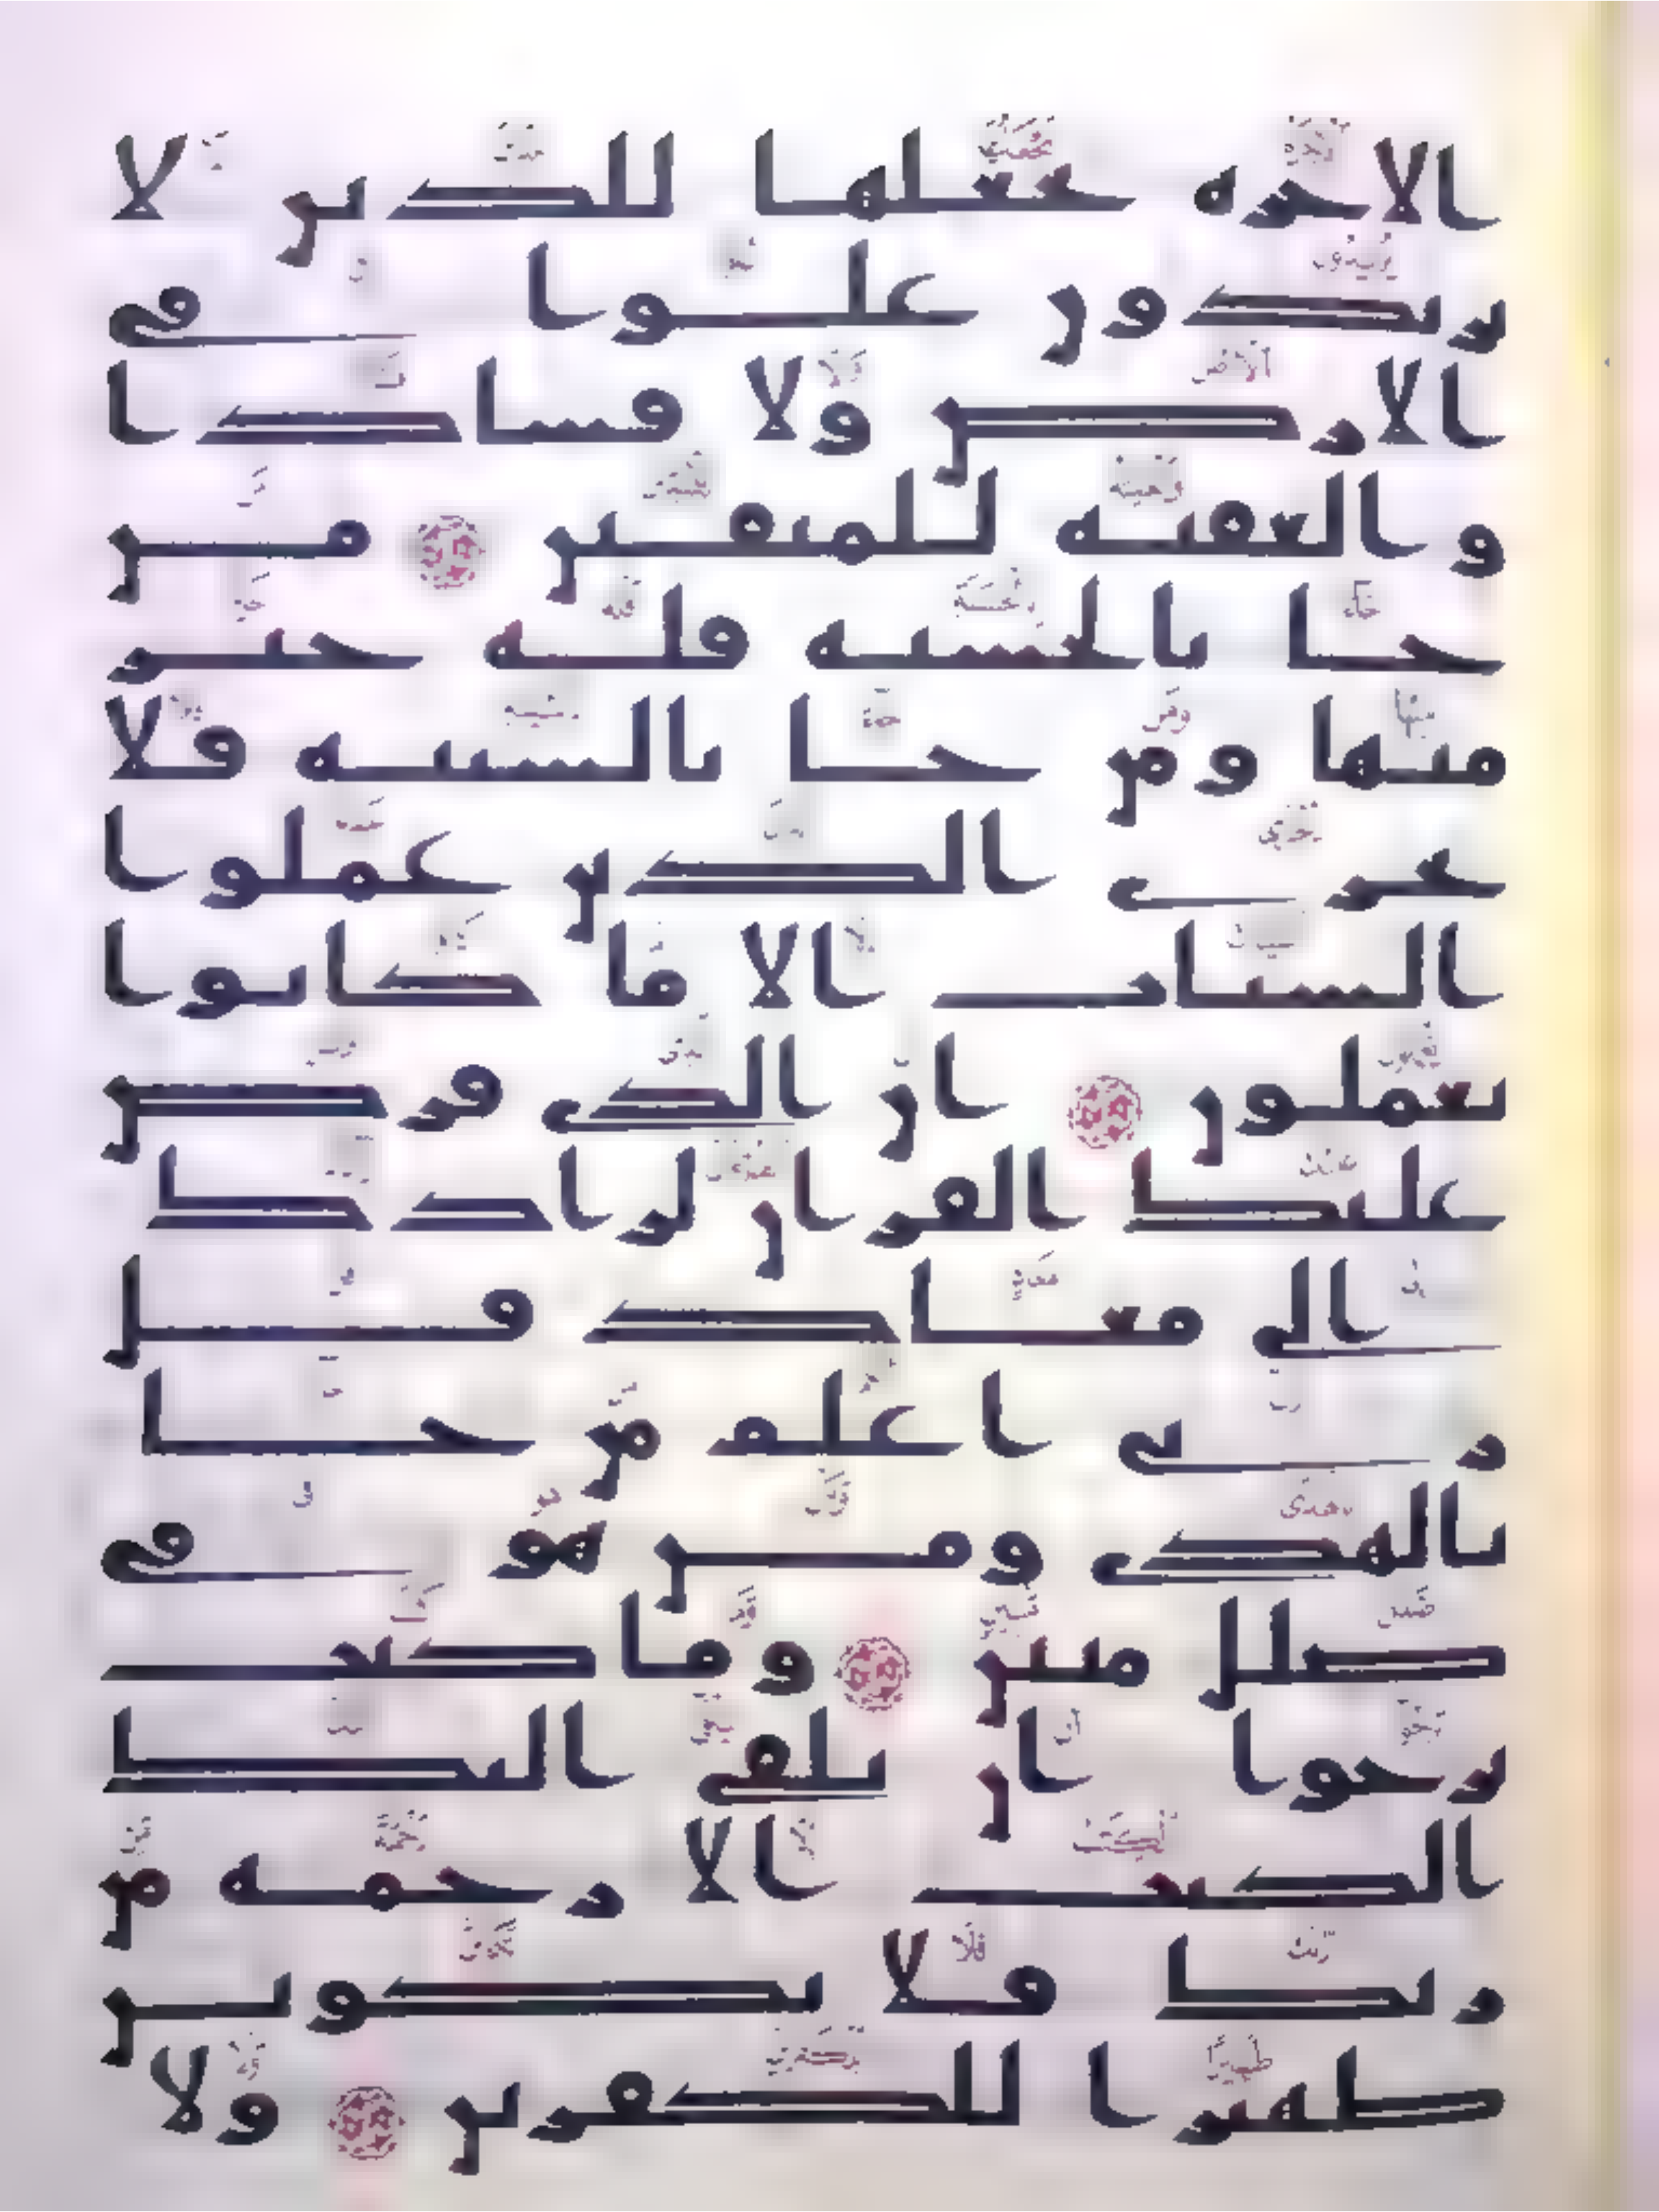 الاخرة نجعلها للذين لا
يريدون علوا في
الارض ولا فسادا
والعقبة للمتقين من
جا بالحسنة فله خير
منها ومن جا بالسيئة فلا
يجزى الذين عملوا
السيات الا ما كانوا
يعملون ان الذي فرض
عليك القران لرادك
الى معاد قل
ربي اعلم من جا
بالهدى ومن هو في
ضلل مبين وما كنت
ترجوا ان يلقى اليك
الكتب الا رحمة من
ربك فلا تكونن
ظهيرا للكفرين ولا